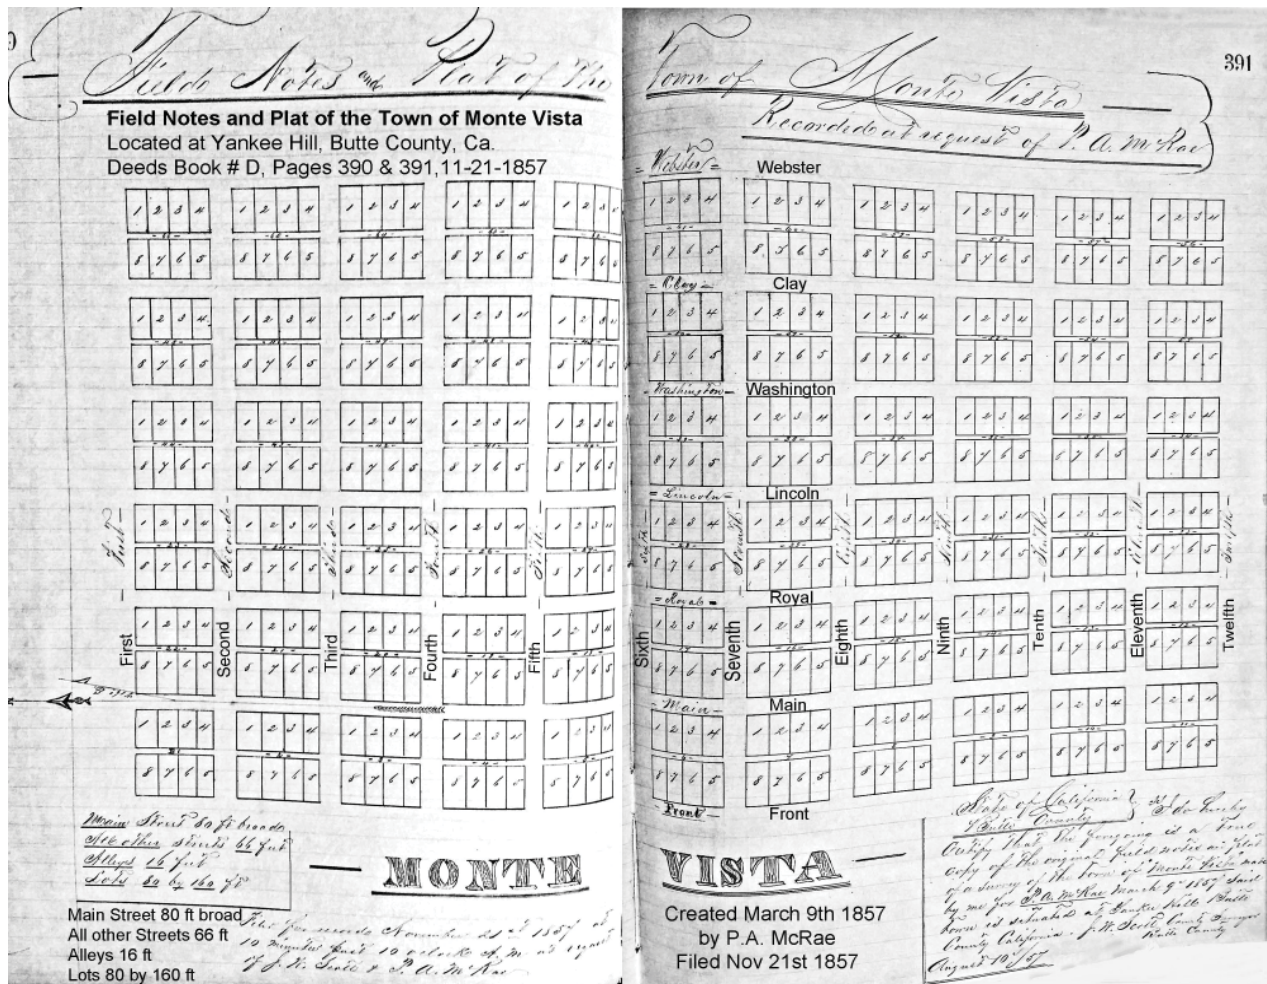 Field Notes and Plat of the
Town of Monte Vista
391
Recorded at request of P. A. McRae
Field Notes and Plat of the Town of Monte Vista
Located at Yankee Hill, Butte County, Ca.
Deeds Book # D, Pages 390 & 391,11-21-1857
= Webster = Webster
1 2 3 4
8 7 6 5
= Clay = Clay
1 2 3 4
8 7 6 5
- Washington - Washington
1 2 3 4
8 7 6 5
= Lincoln = Lincoln
First Second Third Fourth Fifth Sixth Seventh Eighth Ninth Tenth Eleventh Twelfth
1 2 3 4
8 7 6 5
= Royal = Royal
1 2 3 4
8 7 6 5
First Second Third Fourth Fifth Sixth Seventh Eighth Ninth Tenth Eleventh Twelfth
- Main - Main
1 2 3 4
8 7 6 5
- Front - Front
Main Street 80 ft broad
All other Streets 66 feet
Alleys 16 feet
Lots 80 by 160 ft
MONTE VISTA
Main Street 80 ft broad
All other Streets 66 ft
Alleys 16 ft
Lots 80 by 160 ft
Filed for record November 21st 1857 at
10 minutes past 10 o'clock A. M. at request
of J. W. Scott & P. A. McRae
Created March 9th 1857
by P.A. McRae
Filed Nov 21st 1857
State of California
Butte County } I do hereby
Certify that the foregoing is a true
copy of the original field notes and plat
of a survey of the Town of Monte Vista made
by me for P. A. McRae March 9th 1857 Said
town is situated at Yankee Hill Butte
County California. J. W. Scott County Surveyor
Butte County
August 10/57